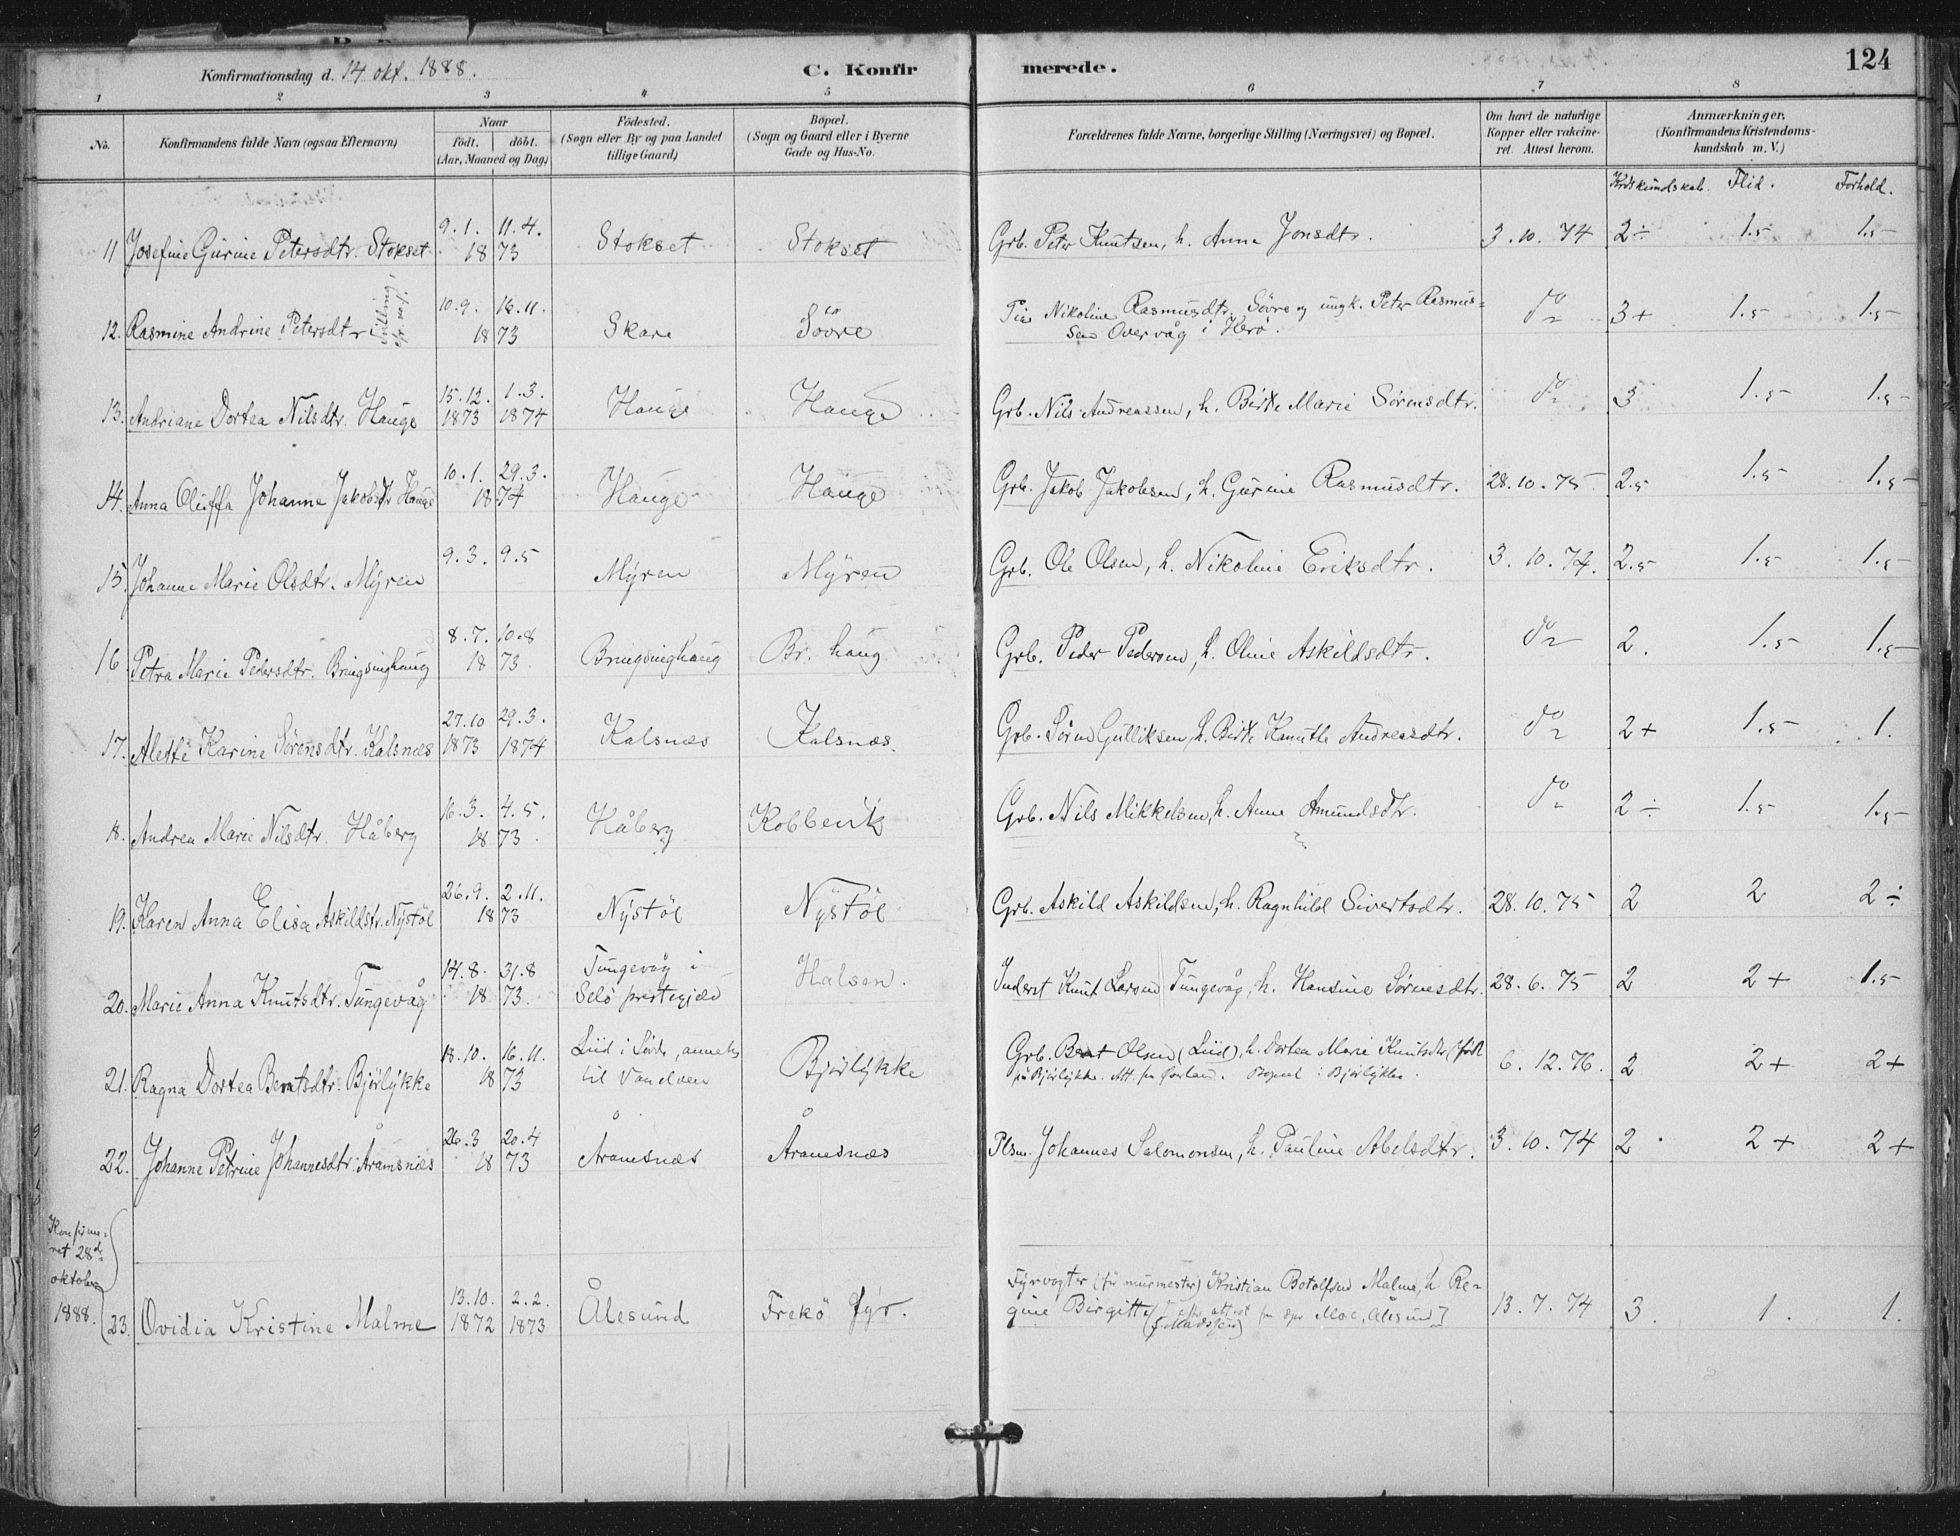 Konfirmationsdag d. 14 okt. 1888. C. Konfirmerede. 124
1 2 3 4 5 6 7 8
No. Konfirmandens fulde Navn (ogsaa Efternavn) Naar födt. döbt. (Aar, Maaned og Dag) Födested. (Sogn eller By og paa Landet tillige Gaard) Bopæl. (Sogn og Gaard eller i Byerne Gade og Hus-No. Forældrenes fulde Navne, borgerlige Stilling (Næringsvei) og Bopæl. Om havt de naturlige Kopper eller vakcineret. Attest herom. Anmærkninger. (Konfirmandens Kristendomskundskab m. V.)
Krdskundskab. Flid. Forhold.
11 Josefine Gurine Petersdtr. Stokset 9.1. 11.4. 1873 Stokset Stokset Grb. Peter Knutsen, h. Anna Jonsdtr. 3.10.74 2÷ 1.5 1.5
12. Rasmine Andrine Petersdtr 10.9. 16.11. 1873 Skare Sövre Pige Nikoline Rasmusdtr. Sövre og ungk. Peter Rasmus=
sen Overvåg i Herö. do 3+ 1.5 1.5
13. Andriane Dortea Nilsdtr. Hauge 15.12. 1873 1.3. 1874 Hauge Hauge Grb. Nils Andreassen, h. Birte Marie Sörensdtr. do 3 1.5 1.5
14. Anna Oliffa Johanna Jakobsdtr Hauge 10.1. 29.3. 1874 Hauge Hauge Grb. Jakob Jakobsen, h. Gurine Rasmusdtr. 28.10.75 2.5 1.5 1.5
15. Johanne Marie Olsdtr. Myren 9.3. 9.5 Myren Myren Grb. Ole Olsen, h. Nikoline Eriksdtr. 3.10.74. 2.5 1.5 1.5
16. Petra Marie Pedersdtr. Bringsinghaug 8.7. 10.8 1873 Bringsinghaug Br. haug Grb. Peder Pedersen, h. Oline Askildsdtr. do 2. 1.5 1.5
17. Alette Karine Sörensdtr. Kalsnæs 27.10 1873 29.3. 1874 Kalsnæs Kalsnæs. Grb. Sören Gulliksen, h. Birte Knutte Andreasdtr. do 2+ 1.5 1.
18. Andrea Marie Nilsdtr. Håberg 16.3. 4.5. 1873 Håberg Kobbevik Grb. Nils Mikkelsen, h. Anne Amundsdtr. do 2÷ 1.5 1.5
19. Karen Anna Elisa Askildstr. Nystöl 26.9. 2.11. 1873 Nystöl Nystöl Grb. Askild Askildsen, h. Ragnhild Sivertsdtr. 28.10.75 2 2 2÷
20. Marie Anna Knutsdtr. Tungevåg 14.8. 31.8 1873. Tungevåg i
Selö prestegjæld Halsen. Inderst Knut Larsen Tungevåg, h. Hansine Sörensdtr. 28.6.75 2 2+ 1.5
21. Ragna Dortea Berntsdtr. Bjørlykke 18.10. 16.11. 1873 Liid i Søvde, anneks
til Vanelven Bjørlykke Grb. Bernt Olsen (Liid), h. Dortea Marie Knutsdtr (født
på Bjørlykke. 6.12.76. 2 2+ 2+
22. Johanne Petrine Johannesdtr. Åramsnæs 26.3 20.4 1873 Åramsnæs Åramsnæs Plsm. Johannes Salomonsen, h. Pauline Abelsdtr. 3.10.74 2 2+ 2+
Konfirme=
ret 28de
oktober
1888. 23. Ovidia Kristine Malme 13.10. 1872 2.2. 1873 Ålesund Frekö fyr. Fyrvogter (för murmester) Kristian Botolfsen Malme, h. Re=
gine Birgitte 13.7.74 3. 1. 1.